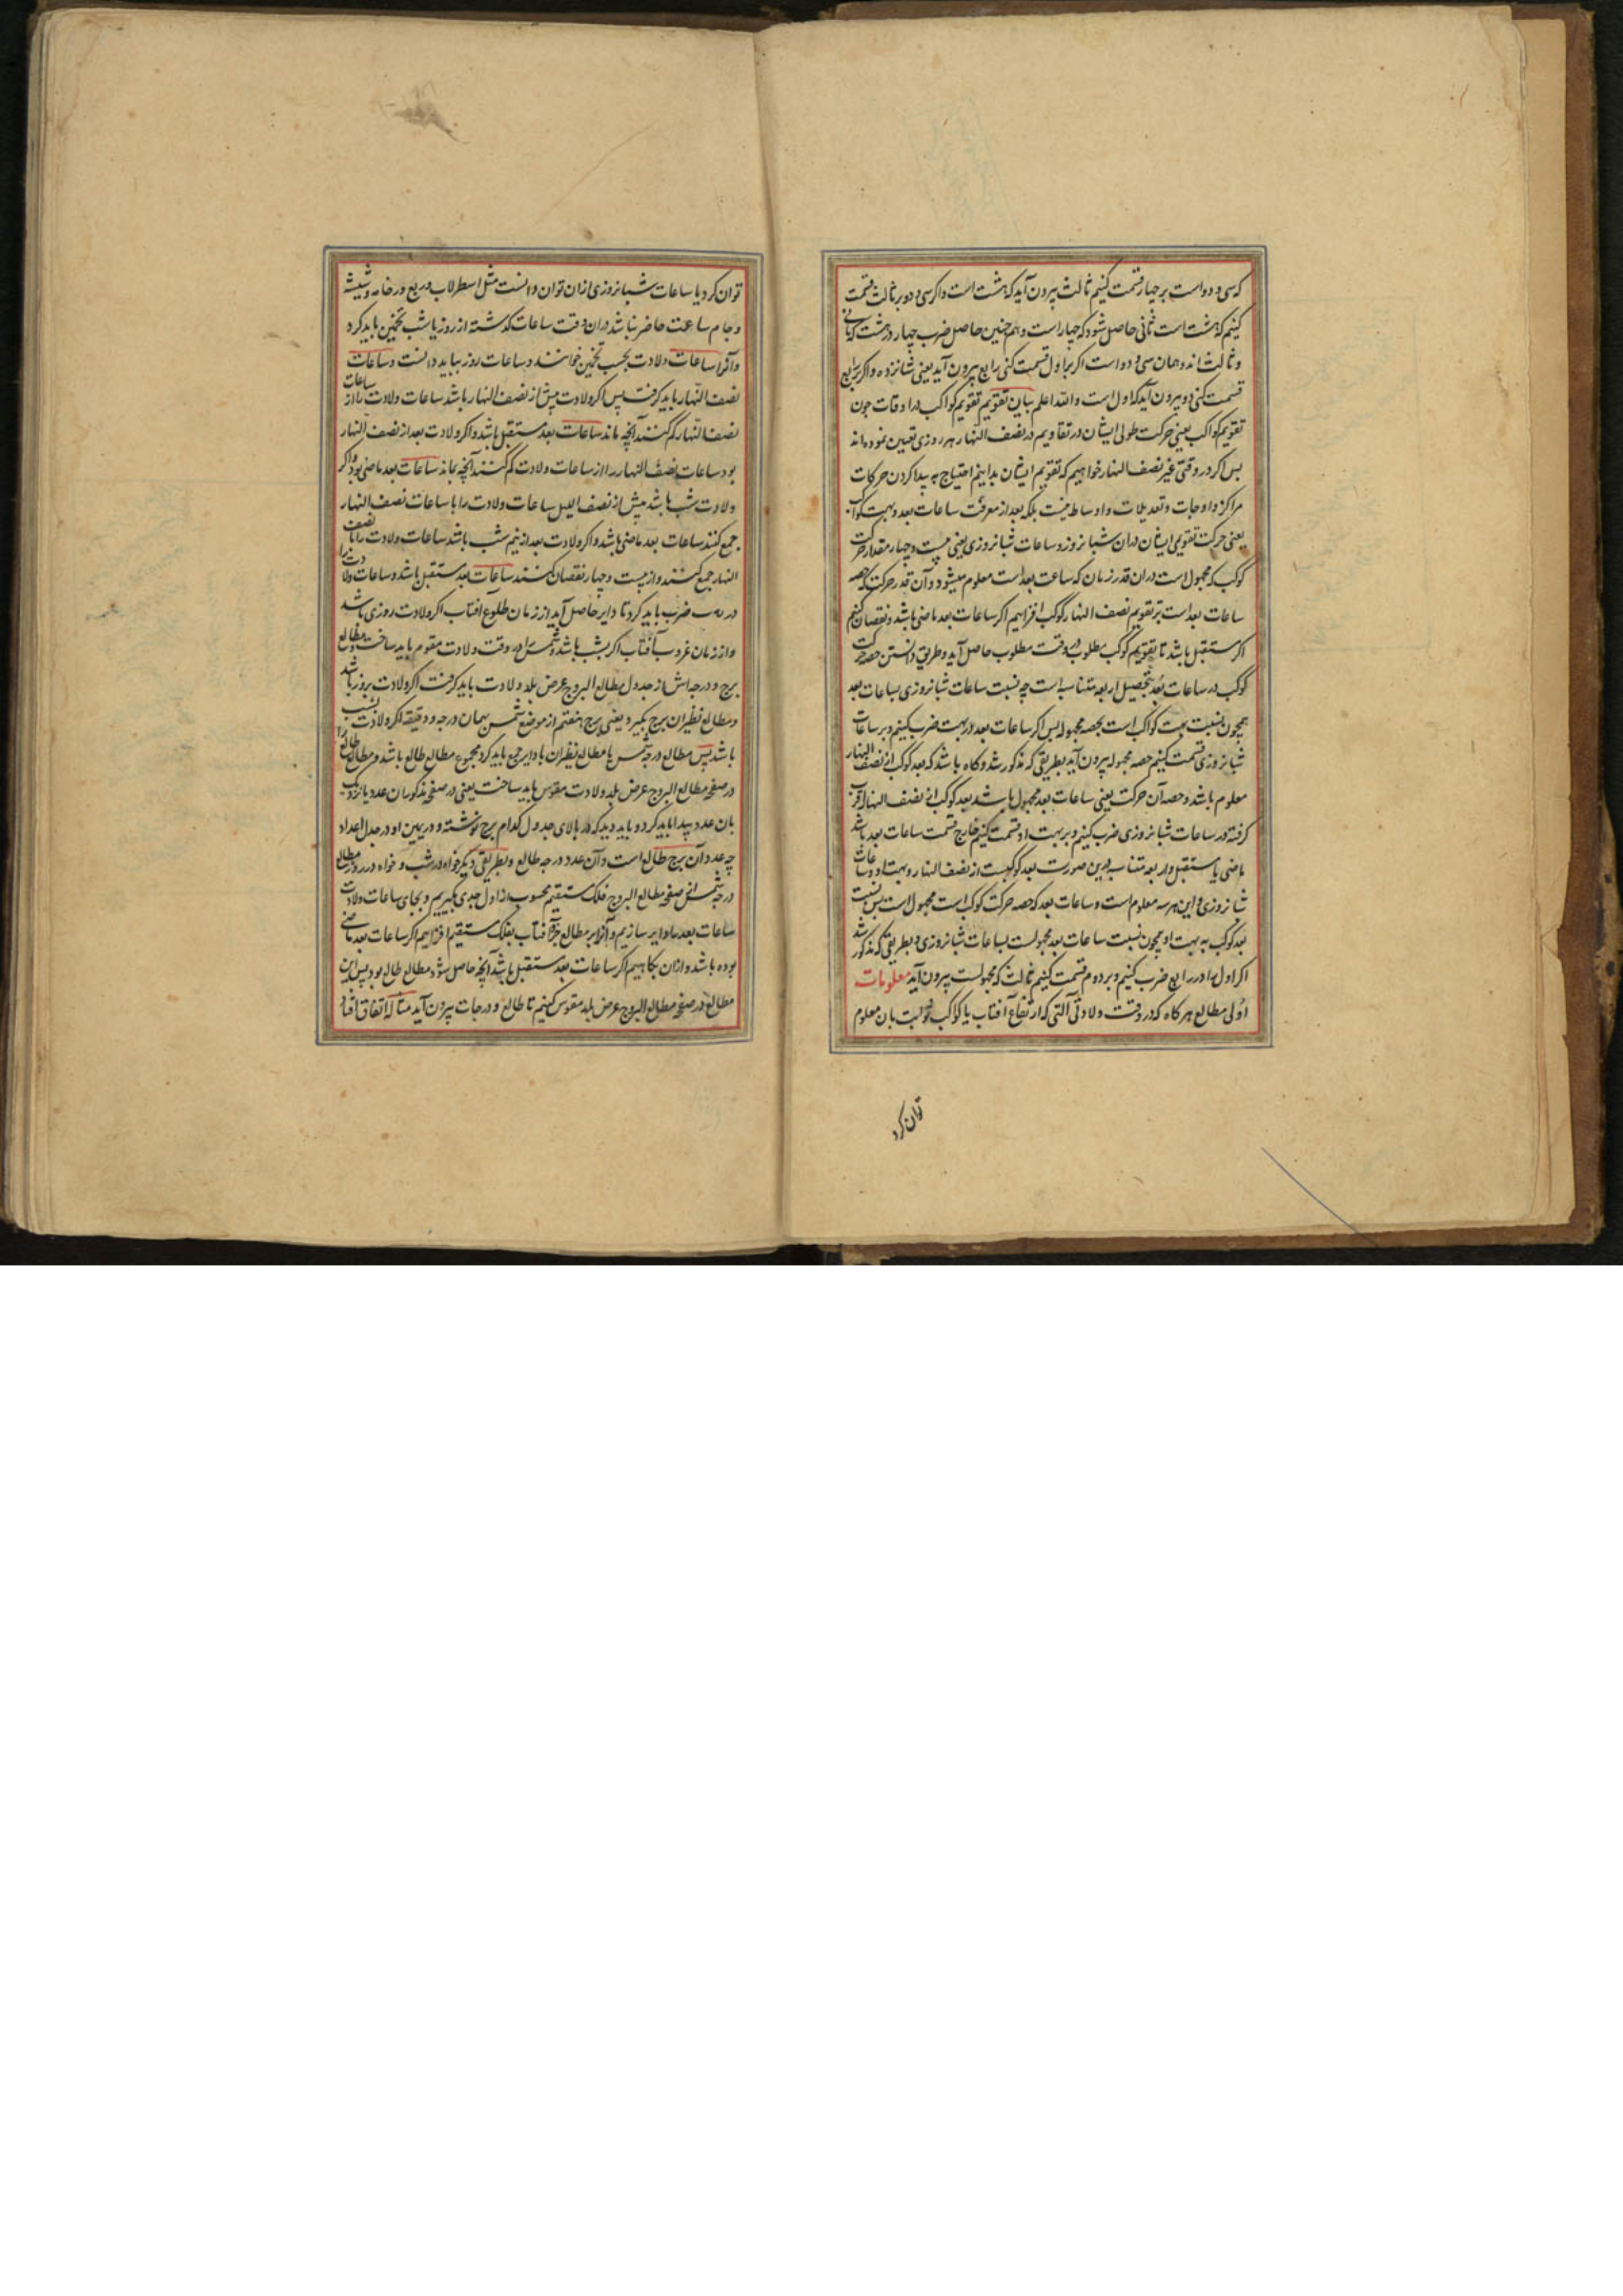 که سی و دو است بر چهار قسمت کنیم ثالث بیرون آید که هشت است و اکر سی و دو بر ثالث قسمت
کنیم که هشت است ثانی حاصل شود که چهار است و هم چنین حاصل ضرب چهار در هشت که ثانی
و ثالث اند و همان سی و دو است اکر بر اول قسمت کنی رابع بیرون آید یعنی شانزده و اکر بر رابع
قسمت کنی دو بیرون آید که اول است و الله اعلم بیان تقویم تقویم کواکب در اوقات چون
تقویم کواکب یعنی حرکت طولی ایشان در تقاویم در نصف النهار هر روزی تعیین نموده اند
بس اکر در وقتی غیر نصف النهار خواهیم که تقویم ایشان بدانیم احتیاج به پیدا کردن حرکات
مراکز و اوجات و تعدیلات و اوساط نیست بلکه بعد از معرفت ساعات بعد و بهت کواکب
یعنی حرکت تقویمی ایشان در ان شبانروز و ساعات شبانروزی یعنی بیست و چهار مقدار حرکت
کوکب که مجهول است در ان قدر زمان که ساعت بعد است معلوم میشود و آن قدر حرکت که حصه
ساعات بعد است بر تقویم نصف النهار کوکب افزاییم اکر ساعات بعد ماضی باشد و نقصان کنیم
اکر مستقبل باشد تا تقویم کوکب مطلوب در وقت مطلوب حاصل آید و طریق دانستن حصه حرکت
کوکب در ساعات بُعد بتحصیل اربعه متناسبه است چه نسبت ساعات شبانروزی بساعات بعد
همچون نسبت بهت کواکب است بحصه مجهوله بس اکر ساعات بعد در بهت ضرب کنیم و بر ساعات
شبانروزی قسمت کنیم حصه مجهوله بیرون آید بطریقی که مذکور شد و کاه باشد که بعد کوکب از نصف النهار
معلوم باشد و حصه آن حرکت یعنی ساعات بعد مجهول باشد بعد کوکب از نصف النهار
کرفته در ساعات شبانروزی ضرب کنیم و بر بهت او قسمت کنیم خارج قسمت ساعات بعد باشد
ماضی یا مستقبل و اربعه متناسبه درین صورت بعد کوکبست از نصف النهار و بهت او و ساعات
شبانروزی و این هر سه معلوم است و ساعات بعد که حصه حرکت کوکب است مجهول است بس نسبت
بعد کوکب به بهت او همچون نسبت ساعات بعد مجهولست بساعات شبانروزی و بطریقی که مذکور شد
اکر اول را در رابع ضرب کنیم و بر دوم قسمت کنیم ثالث که مجهولست بیرون آید معلومات
اوُلی مطالع هر کاه که در وقت ولادتی آلتی که ارتفاع آفتاب یا کواکب ثوابت بان معلوم
توان کرد
توان کرد یا ساعات شبانروزی ازان توان دانست مثل اسطرلاب و ربع و رخامه و شیشه
و جام ساعت حاضر نباشد دران وقت ساعات کذشته از روز یا شب تخمین باید کرد
و آنرا ساعات ولادت بحسب تخمین خوانند و ساعات روز بباید دانست و ساعات
نصف النهار باید کرفت پس اکر ولادت پیش از نصف النهار باشد ساعات ولادت را از ساعات
نصف النهار کم کنند آنچه ماند ساعات بعد مستقبل باشد و اکر ولادت بعد از نصف النهار
بود ساعات نصف النهار را از ساعات ولادت کم کنند آنچه بماند ساعات بعد ماضی بود و اکر
ولادت شب باشد پیش از نصف اللیل ساعات ولادت را با ساعات نصف النهار
جمع کنند ساعات بعد ماضی باشد و اکر ولادت بعد از نیم شب باشد ساعات ولادت را با نصف
النهار جمع کنند و از بیست و چهار نقصان کنند ساعات بعد مستقبل باشد و ساعات ولادت را
در یه ضرب باید کرد تا دایر حاصل آید از زمان طلوع افتاب اکر ولادت روزی باشد
و از زمان غروب آفتاب اکر بشب باشد و شمس را در وقت ولادت مقوم باید ساخت و مطالع
برج و درجه اش از جدول مطالع البروج عرض بلد ولادت باید کرفت اکر ولادت بروز باشد
و مطالع نظیران برج بکیرد یعنی برج هفتم از موضع شمس بهمان درجه و دقیقه اکر ولادت بشب
باشد پس مطالع درجه شمس یا مطالع نظیران با دایر جمع باید کرد مجموع مطالع طالع باشد و مطالع طالع را
در صفحه مطالع البروج عرض بلد ولادت مقوس باید ساخت یعنی در صفحه مذکور ان عدد یا نزدیک
بان عدد پیدا باید کرد و باید دید که در بالای جدول کدام برج نوشته و در یمین او در جدول اعداد
چه عدد آن برج طالع است و آن عدد درجه طالع و بطریقی دیکر خواه در شب و خواه در روز مطالع
درجه شمس از صفحه مطالع البروج فلک مستقیم محسوب از اول جدی بکیریم و بجای ساعات ولادت
ساعات بعد را دایر سازیم و آنرا بر مطالع جزء آفتاب بفلک مستقیم افزاییم اکر ساعات بعد ماضی
بوده باشد و ازان بکاهیم اکر ساعات بعد مستقبل باشد آنچه حاصل شود مطالع طالع بود پس این
مطالع در صفحه مطالع البروج عرض بلد مقوس کنیم تا طالع و درجات بیرون آید مثاله اتفاق افتاد